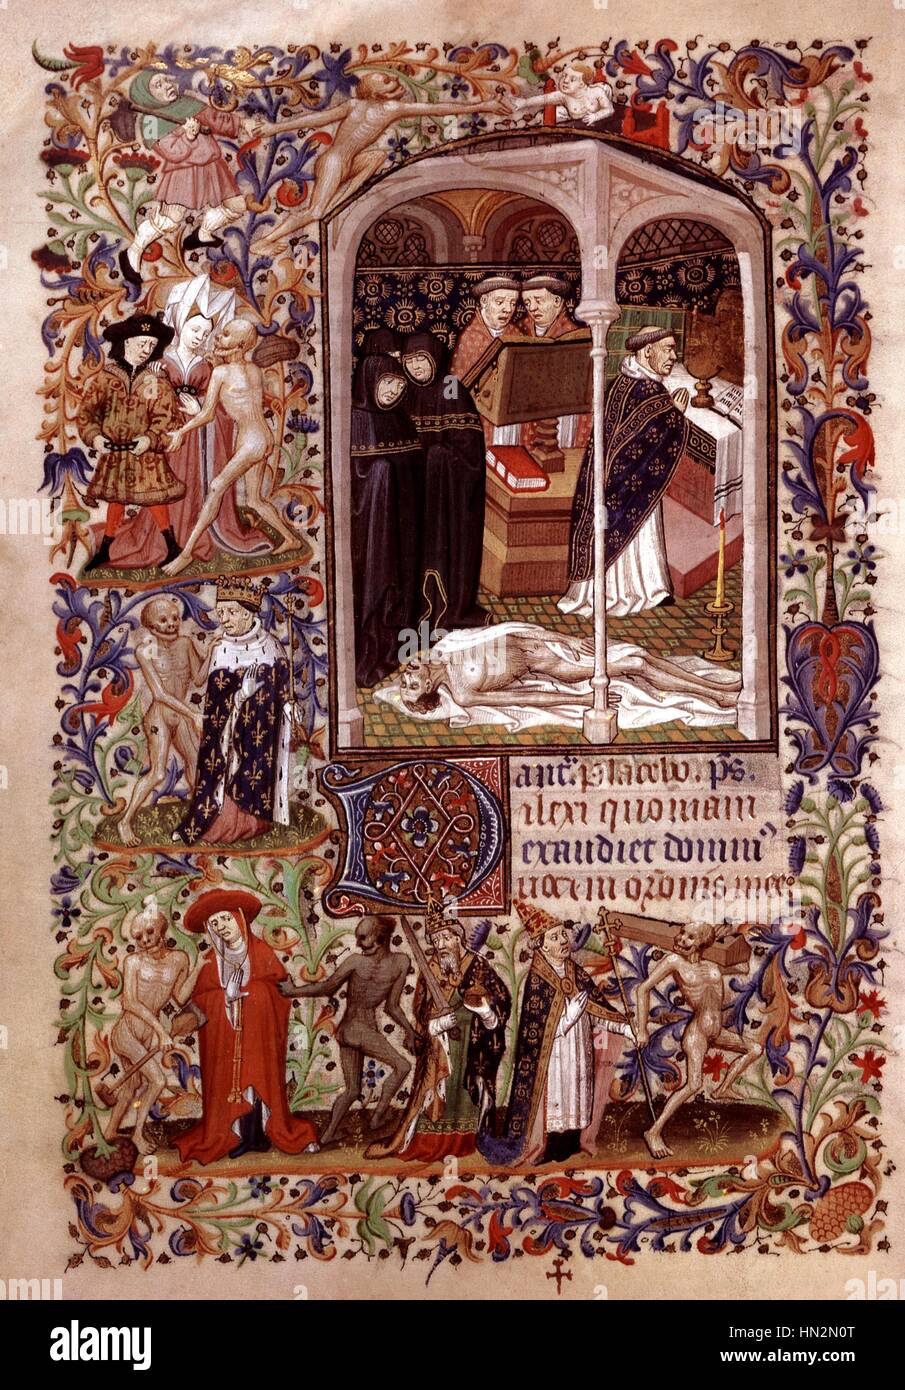 ant̄. Placebo. p̄s.
ilexi quoniam
exaudiet domin᷒
vocem or̄onis mee
alamy
alamy
Image ID: HN2N0T
www.alamy.com